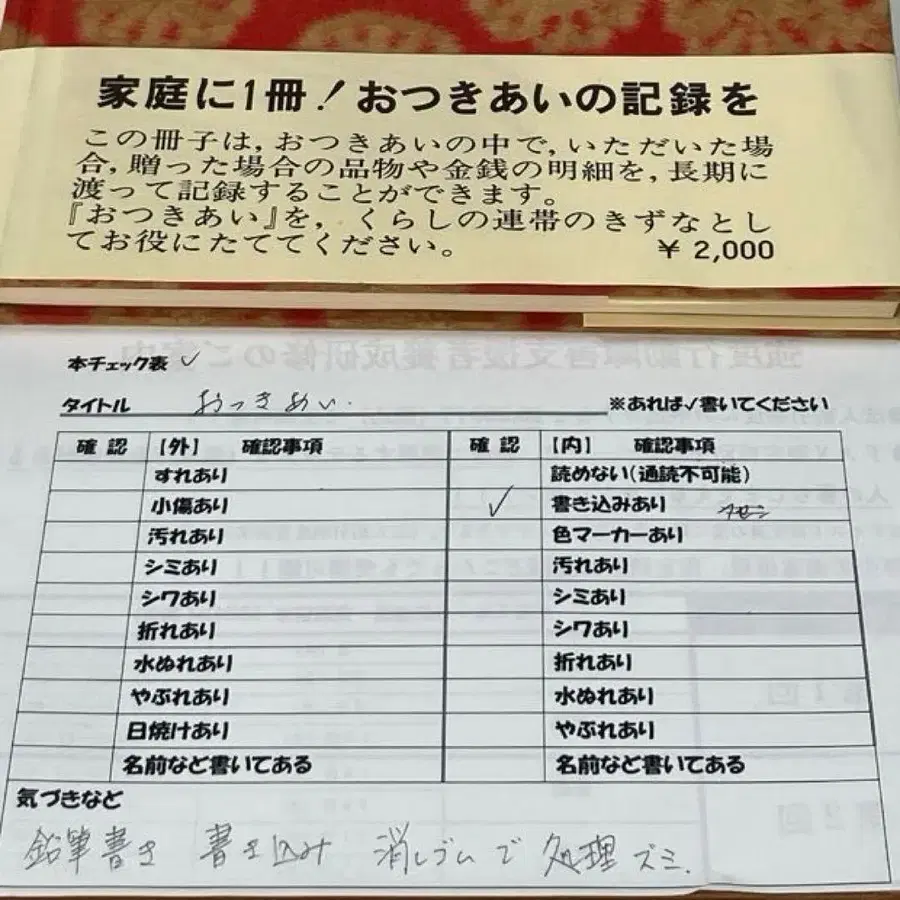 家庭に1冊！おつきあいの記録を
この冊子は，おつきあいの中で，いただいた場
合，贈った場合の品物や金銭の明細を，長期に
渡って記録することができます。
『おつきあい』を，くらしの連帯のきずなとし
てお役にたててください。 ￥2,000
本チェック表 ✓
タイトル おつきあい. ※あれば✓書いてください
確認 【外】 確認事項 確認 【内】 確認事項
すれあり 読めない（通読不可能）
小傷あり ✓ 書き込みあり
汚れあり 色マーカーあり
シミあり 汚れあり
シワあり シミあり
折れあり シワあり
水ぬれあり 折れあり
やぶれあり 水ぬれあり
日焼けあり やぶれあり
名前など書いてある 名前など書いてある
気づきなど
鉛筆書き 書き込み 消しゴムで 処理ズミ.